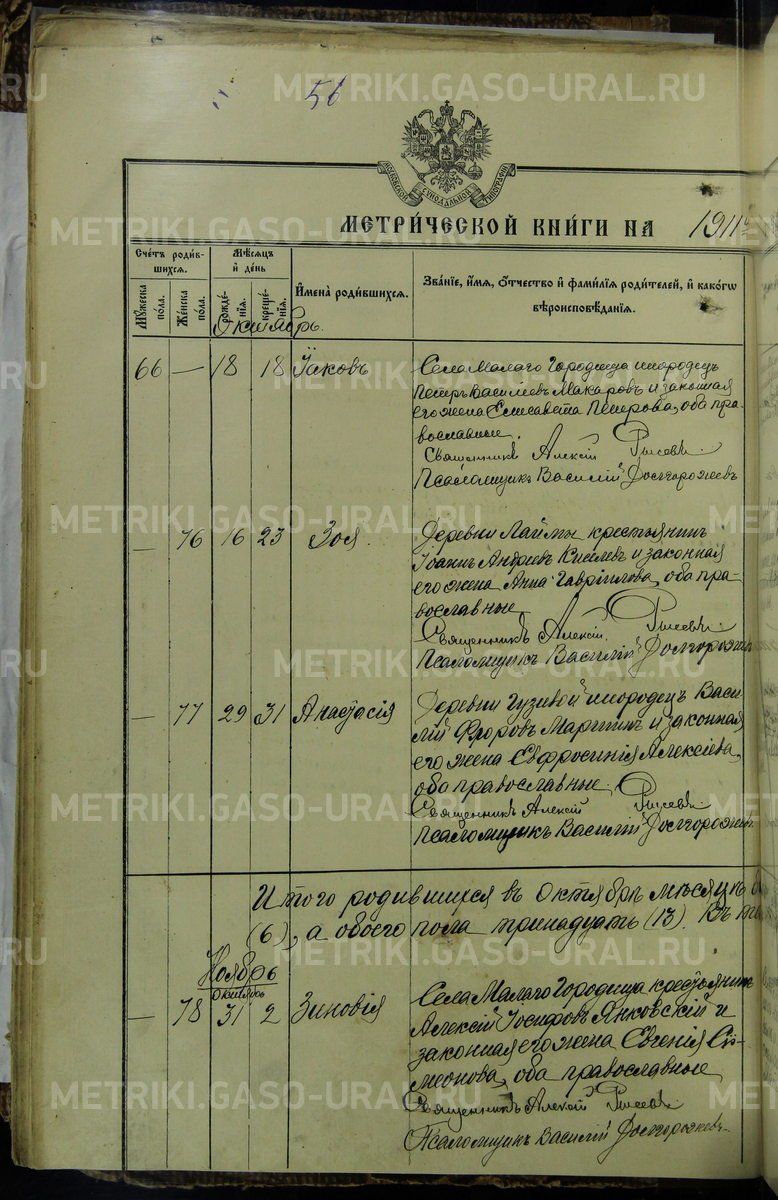 METRIKI.GASO-URAL.RU
56
МОСКОВСКОЙ СѴНОДАЛЬНОЙ ТИПОГРАФІИ
МЕТРИЧЕСКОЙ КНИГИ НА 1911 г.
Счетъ родившихся.
Мужеска пола.
Женска пола.
Мѣсяцъ и день
рожденія.
крещенія.
Имена родившихся.
Званіе, имя, отчество и фамилія родителей, и какогѡ
вѣроисповѣданія.
Октябрь.
66 — 18 18 Іаковъ
Села Малаго Городища инородецъ
Петръ Васильевъ Макаровъ и законная
его жена Елисавета Петрова, оба пра-
вославные.
Священникъ Алексій
Псаломщикъ Василій Долгорожевъ
— 76 16 23 Зоя.
Деревни Лаймы крестьянинъ
Іоаннъ Андреевъ Киселевъ и законная
его жена Анна Гавріилова, оба пра-
вославные
Священникъ Алексій
Псаломщикъ Василій
— 77 29 31 Анастасія
Деревни инородецъ Васи-
лій Фроловъ и законная
его жена Евфросинія Алексіева,
оба православные.
Священникъ Алексій
Псаломщикъ Василій
Итого родившихся въ Октябрѣ мѣсяцѣ
(6), а обоего пола тринадцать (13). Въ
Ноябрь
Октябрь
— 78 31 2 Зиновія
Села Малаго Городища крестьянинъ
Алексій Іосифовъ Янковскій и
законная его жена Евгенія Си-
меонова, оба православные
Священникъ Алексій
Псаломщикъ Василій Долгорожевъ